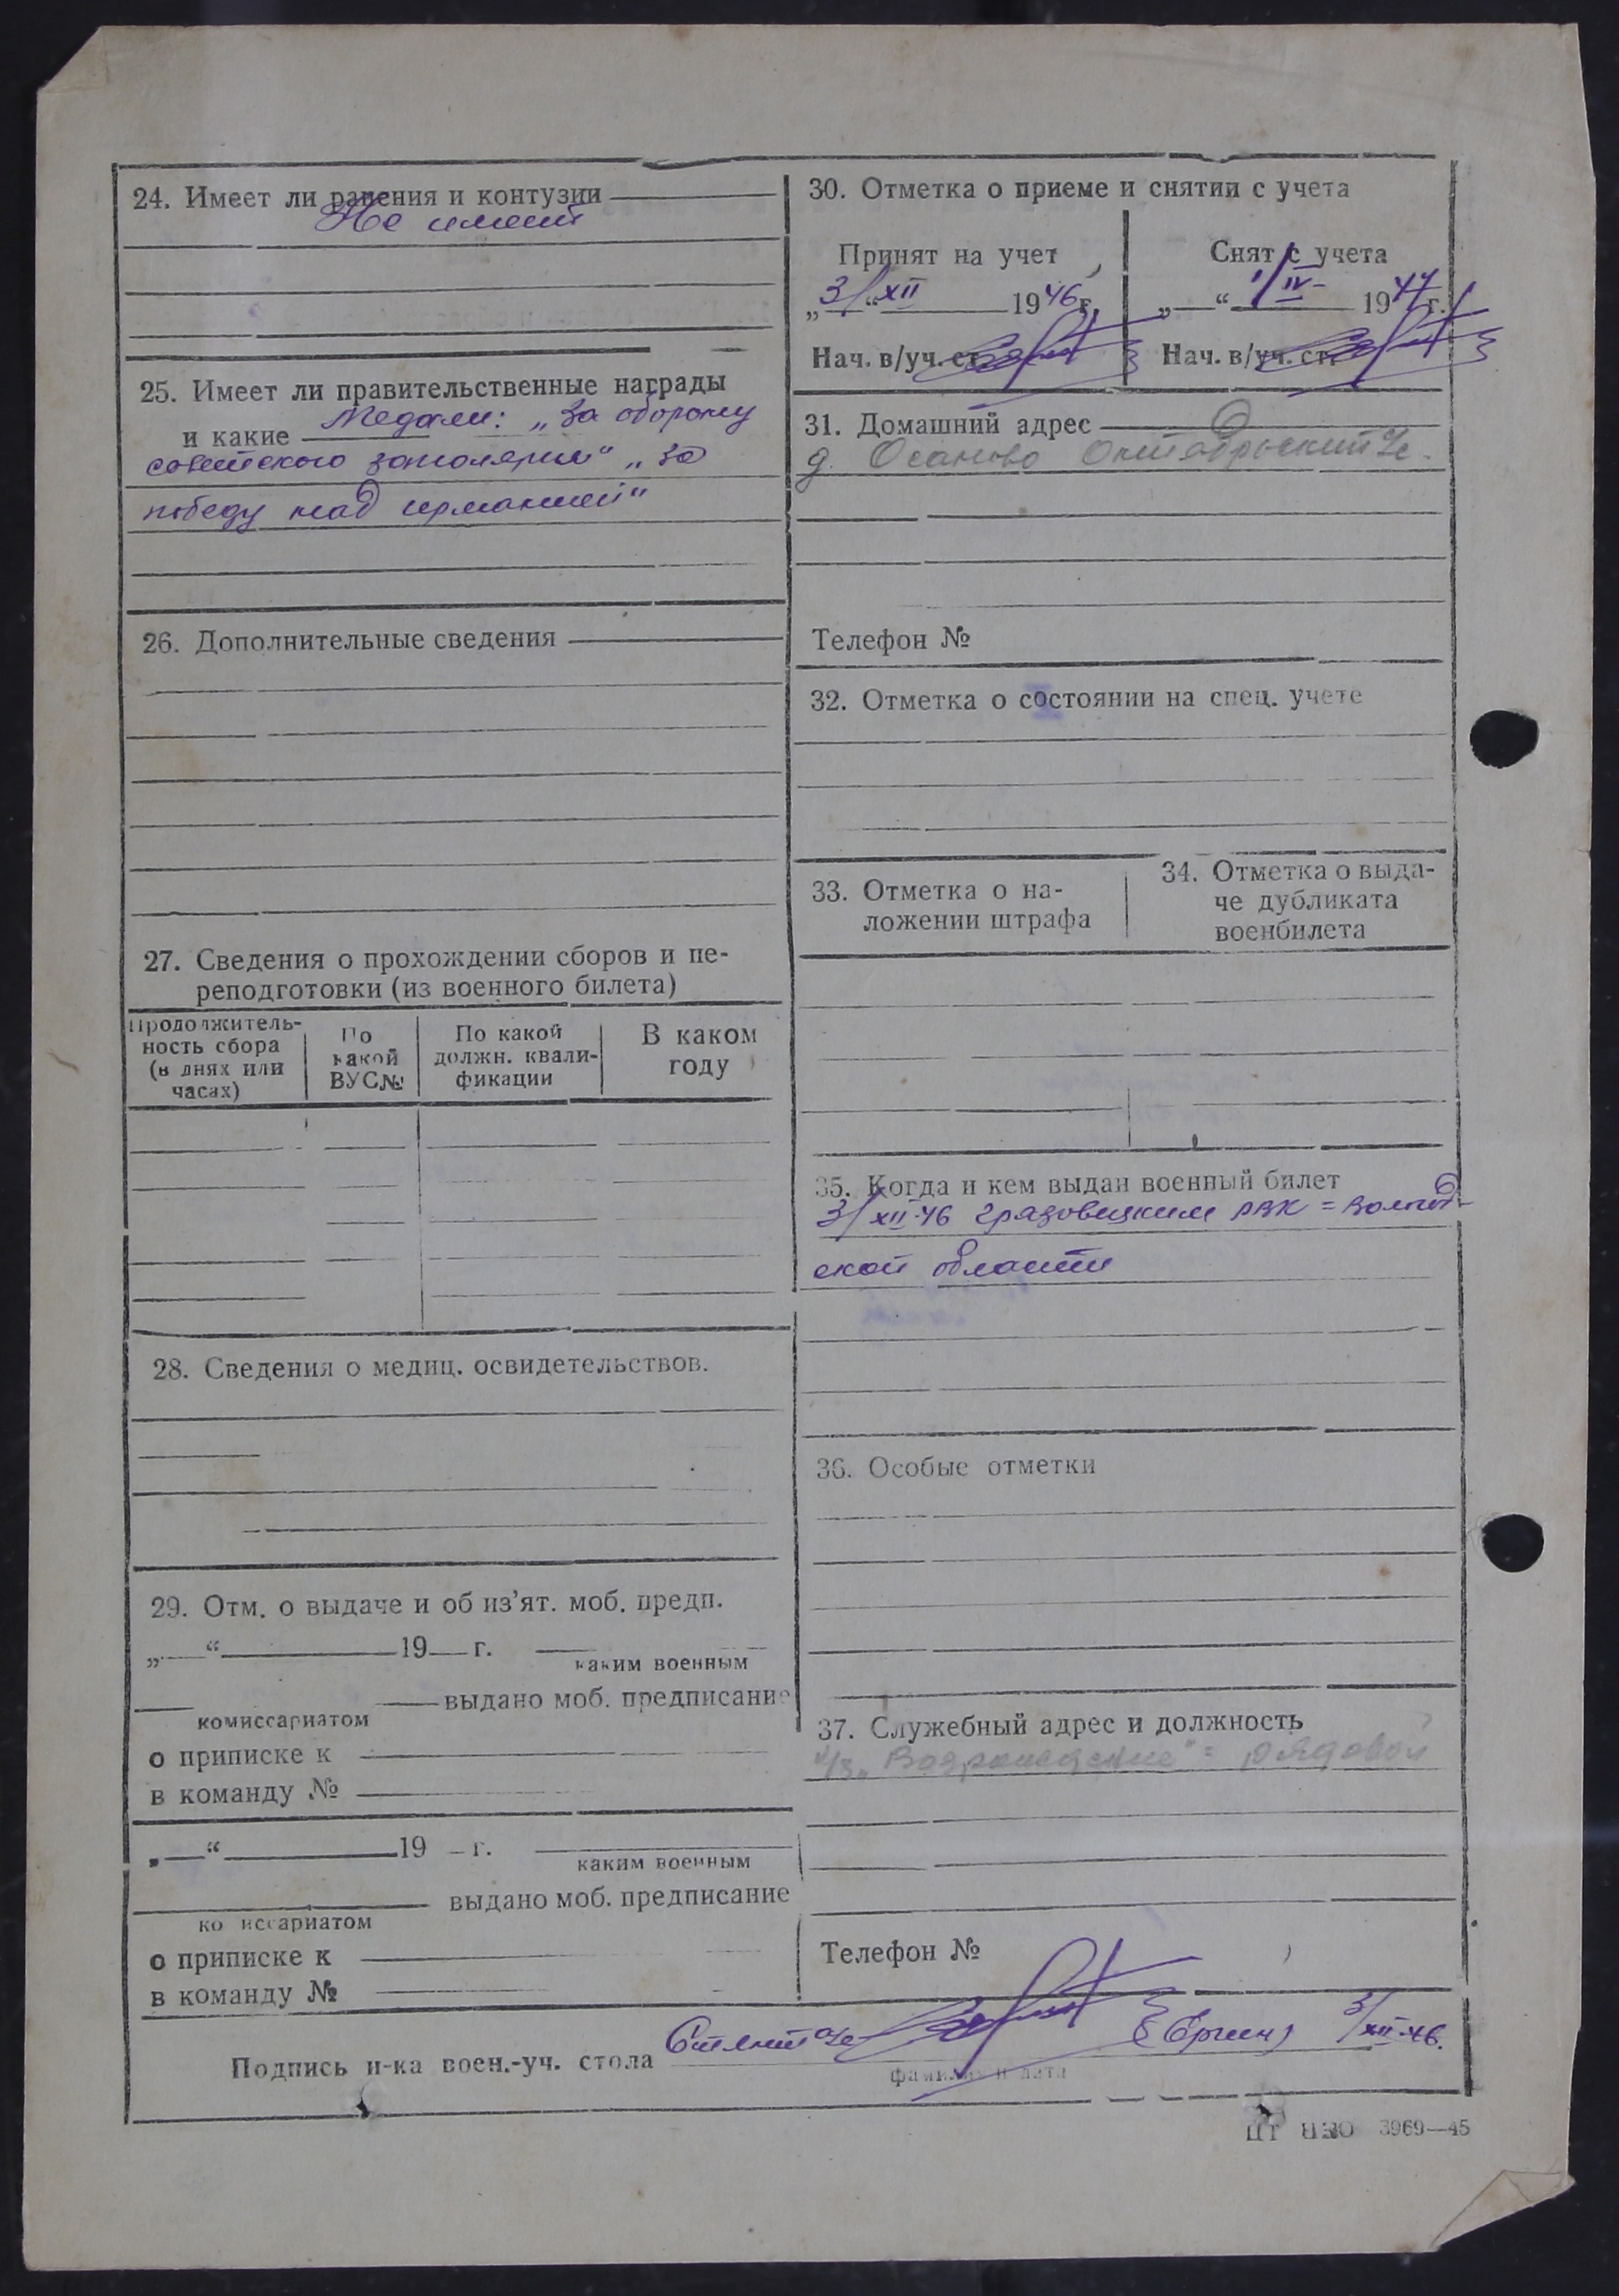 24. Имеет ли ранения и контузии
Не имеет
25. Имеет ли правительственные награды
и какие Медали: „За оборону
советского заполярья" „За
победу над германией"
26. Дополнительные сведения
27. Сведения о прохождении сборов и пе-
реподготовки (из военного билета)
Продолжитель-
ность сбора
(в днях или
часах)
По
какой
ВУС№
По какой
должн. квали-
фикации
В каком
году
28. Сведения о медиц. освидетельствов.
29. Отм. о выдаче и об из'ят. моб. предп.
„ “ 19 г.
каким военным
выдано моб. предписание
комиссариатом
о приписке к
в команду №
„ “ 19 г.
каким военным
выдано моб. предписание
комиссариатом
о приписке к
в команду №
30. Отметка о приеме и снятии с учета
Принят на учет
„3/“ XII 1946 г.
Нач. в/уч. ст.
Снят с учета
„ “ 1/IV- 1947 г.
Нач. в/уч. ст.
31. Домашний адрес
д. Осаново Октябрьский
Телефон №
32. Отметка о состоянии на спец. учете
33. Отметка о на-
ложении штрафа
34. Отметка о выда-
че дубликата
военбилета
35. Когда и кем выдан военный билет
3/XII-46 Грязовецким РВК = Вологод-
ской области
36. Особые отметки
37. Служебный адрес и должность
„Возрождение" = рядовой
Телефон №
Подпись н-ка воен.-уч. стола 3/XII-46.
фамилия и дата
3969—45